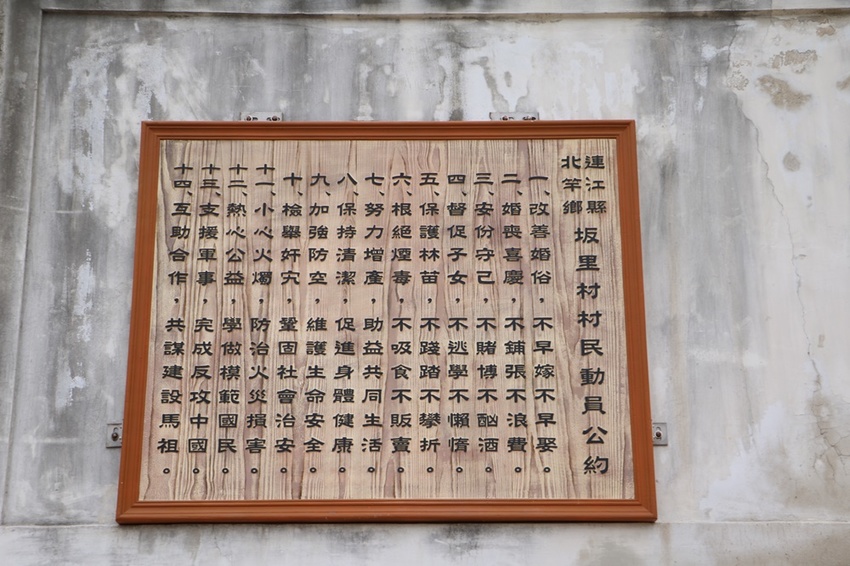 連江縣
北竿鄉
坂里村村民動員公約
一、改善婚俗，不早嫁不早娶。
二、婚喪喜慶，不鋪張不浪費。
三、安份守己，不賭博不酗酒。
四、督促子女，不逃學不懶惰。
五、保護林苗，不踐踏不攀折。
六、根絕煙毒，不吸食不販賣。
七、努力增產，助益共同生活。
八、保持清潔，促進身體健康。
九、加強防空，維護生命安全。
十、檢舉奸宄，鞏固社會治安。
十一、小心火燭，防治火災損害。
十二、熱心公益，學做模範國民。
十三、支援軍事，完成反攻中國。
十四、互助合作，共謀建設馬祖。